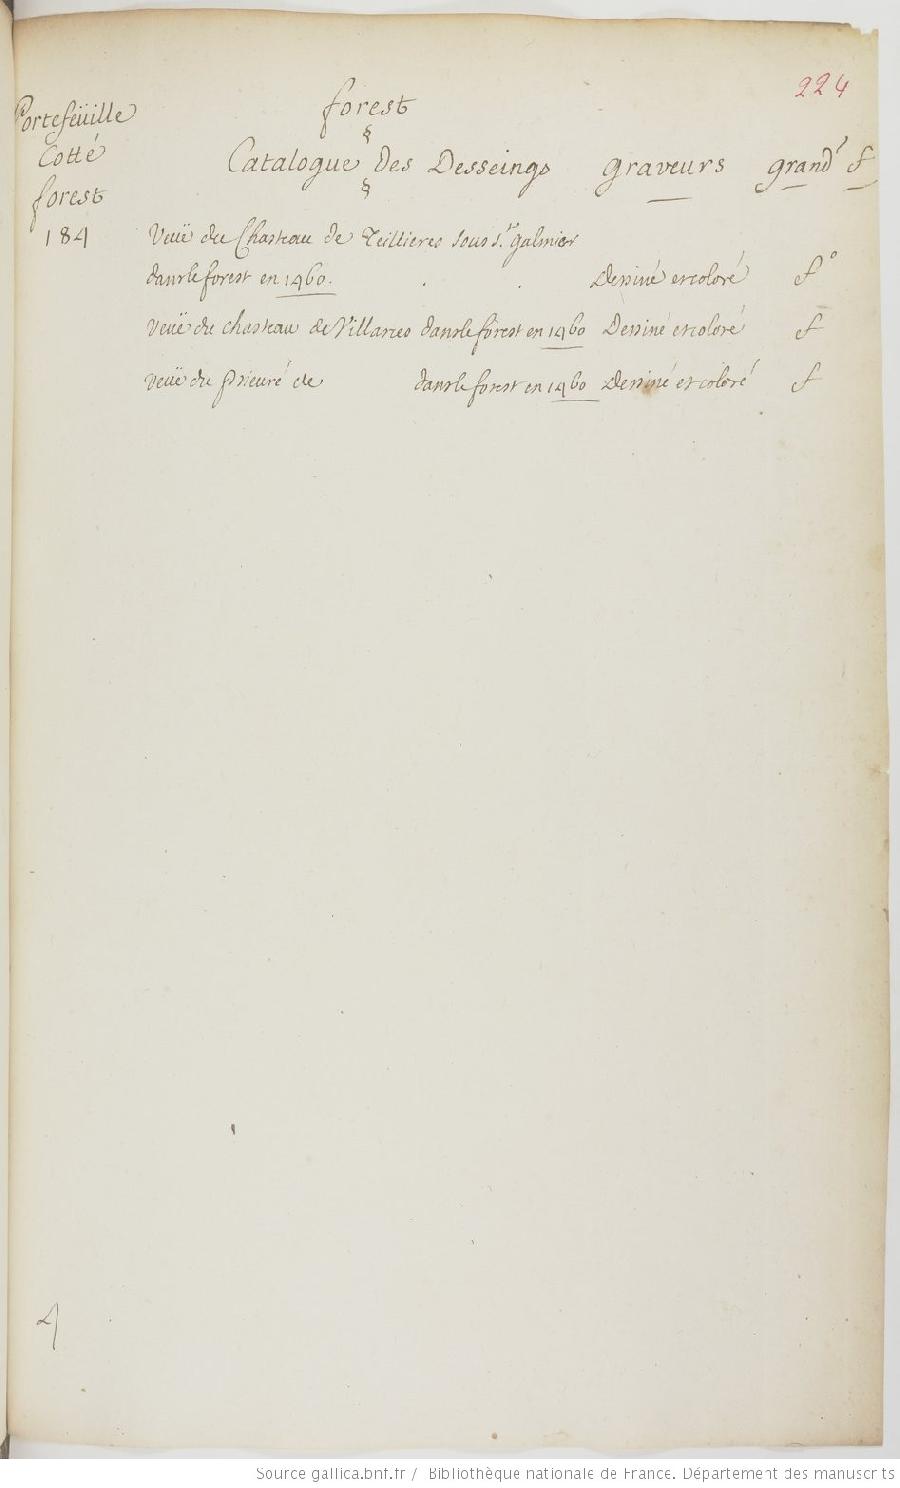 224
Portefeüille
Cotté
forest
184
forest
§
Catalogue des Desseings graveurs grand.r f
§
Veuë du Chasteau de Teillieres sous S.t galmier
dans le forest en 1460. . . Dessiné et coloré f°
Veuë du chasteau de Villars dans le forest en 1460 Dessiné et coloré f
veuë du prieuré de dans le forest en 1460 Dessiné et coloré f
4
Source gallica.bnf.fr / Bibliothèque nationale de France. Département des manuscrits